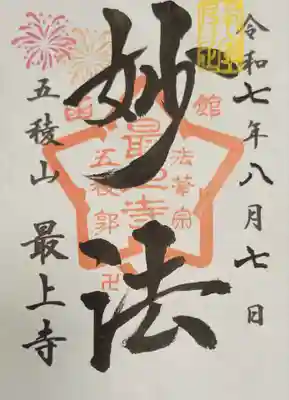 令和七年八月七日
妙法
函館
最上寺
法華宗
五稜郭
卍
五稜山 最上寺